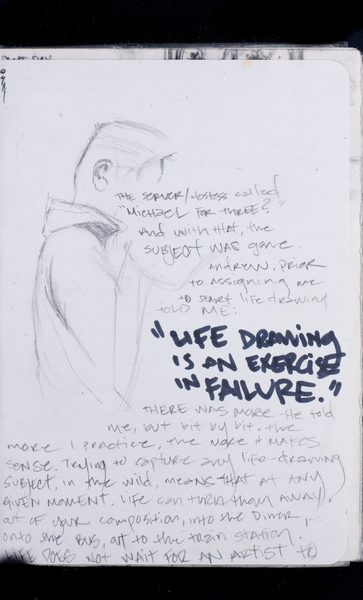 THE SERVER/HOSTESS CALLED
"MICHAEL FOR THREE?"
AND WITH THAT, THE
SUBJECT WAS GONE.
ANDREW, PRIOR
TO ASSIGNING ME
TO START LIFE DRAWING
TOLD ME:
"LIFE DRAWING
IS AN EXERCISE
IN FAILURE."
THERE WAS MORE HE TOLD
ME, BUT BIT BY BIT. THE
MORE I PRACTICE, THE MORE IT MAKES
SENSE. TRYING TO CAPTURE ANY LIFE-DRAWING
SUBJECT, IN THE WILD, MEANS THAT AT ANY
GIVEN MOMENT, LIFE CAN TURN THEM AWAY,
OUT OF YOUR COMPOSITION, INTO THE DINER,
ONTO THE BUS, OUT TO THE TRAIN STATION.
LIFE DOES NOT WAIT FOR AN ARTIST TO